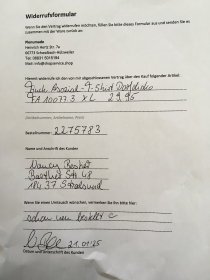 Widerrufsformular
Wenn Sie den Vertrag widerrufen möchten, füllen Sie bitte dieses Formular aus und senden Sie es
zusammen mit der Ware zurück an
Heinrich Hertz Str. 7a
Tel: 06831 5015194
Hiermit widerrufe ich den von mir abgeschlossenen Vertrag über den Kauf folgender Artikel:
T-Shirt
FA 10077.3 XL 29.95
(Artikelnummer, Artikelname, Preis)
Bestellnummer: 2275783
Name und Anschrift des Kunden
Nancy
Str 48
18437 Stralsund
Wenn Sie einen Umtausch wünschen, vermerken Sie ihn bitte hier:
schon neu bestellt
21.01.25
Datum und Unterschrift des Kunden